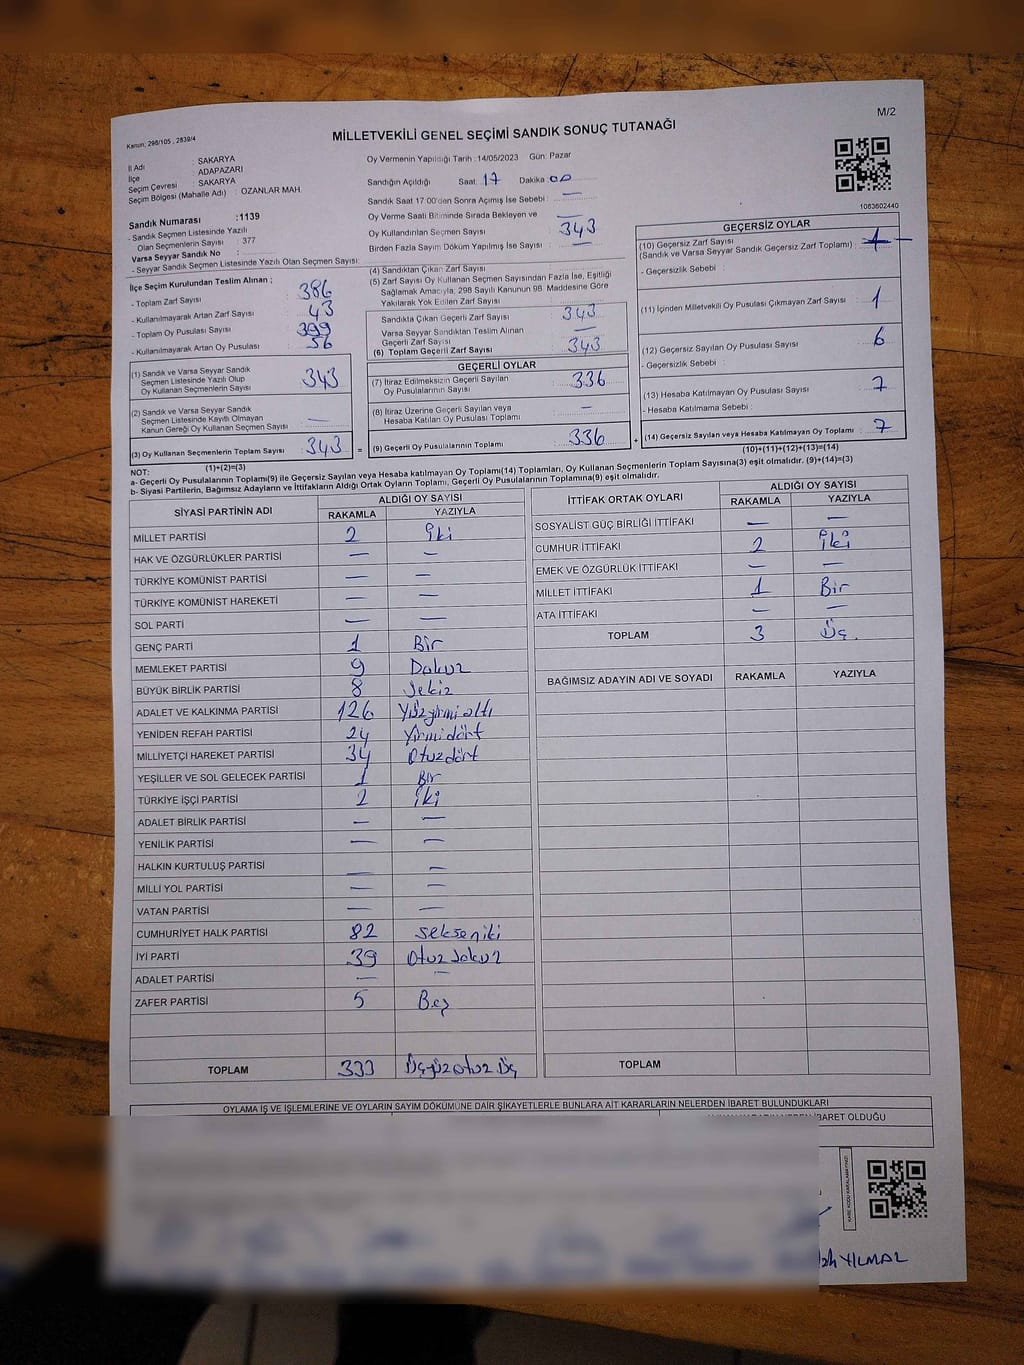 M/2
Kanun: 298/105, 2839/4
MİLLETVEKİLİ GENEL SEÇİMİ SANDIK SONUÇ TUTANAĞI
İl Adı : SAKARYA
İlçe : ADAPAZARI
Seçim Çevresi : SAKARYA
Seçim Bölgesi (Mahalle Adı) : OZANLAR MAH.
Sandık Numarası :1139
- Sandık Seçmen Listesinde Yazılı
Olan Seçmenlerin Sayısı : 377
Varsa Seyyar Sandık No :
- Seyyar Sandık Seçmen Listesinde Yazılı Olan Seçmen Sayısı:
Oy Vermenin Yapıldığı Tarih : 14/05/2023 Gün: Pazar
Sandığın Açıldığı Saat: 17 Dakika: 00
Sandık Saat 17:00'den Sonra Açılmış İse Sebebi : —
Oy Verme Saati Bitiminde Sırada Bekleyen ve
Oy Kullandırılan Seçmen Sayısı : 343
Birden Fazla Sayım Döküm Yapılmış İse Sayısı : —
1083602440
İlçe Seçim Kurulundan Teslim Alınan ;
- Toplam Zarf Sayısı : 386
- Kullanılmayarak Artan Zarf Sayısı : 43
- Toplam Oy Pusulası Sayısı : 399
- Kullanılmayarak Artan Oy Pusulası : 56
(1) Sandık ve Varsa Seyyar Sandık
Seçmen Listesinde Yazılı Olup
Oy Kullanan Seçmenlerin Sayısı : 343
(2) Sandık ve Varsa Seyyar Sandık
Seçmen Listesinde Kayıtlı Olmayan
Kanun Gereği Oy Kullanan Seçmen Sayısı : —
(3) Oy Kullanan Seçmenlerin Toplam Sayısı : 343
(1)+(2)=(3)
(4) Sandıktan Çıkan Zarf Sayısı :
(5) Zarf Sayısı Oy Kullanan Seçmen Sayısından Fazla İse, Eşitliği
Sağlamak Amacıyla, 298 Sayılı Kanunun 98. Maddesine Göre
Yakılarak Yok Edilen Zarf Sayısı :
Sandıkta Çıkan Geçerli Zarf Sayısı : 343
Varsa Seyyar Sandıktan Teslim Alınan
Geçerli Zarf Sayısı : —
(6) Toplam Geçerli Zarf Sayısı : 343
GEÇERLİ OYLAR
(7) İtiraz Edilmeksizin Geçerli Sayılan
Oy Pusulalarının Sayısı : 336
(8) İtiraz Üzerine Geçerli Sayılan veya
Hesaba Katılan Oy Pusulası Toplamı : —
(9) Geçerli Oy Pusulalarının Toplamı : 336
GEÇERSİZ OYLAR
(10) Geçersiz Zarf Sayısı
(Sandık ve Varsa Seyyar Sandık Geçersiz Zarf Toplamı) : —
- Geçersizlik Sebebi :
(11) İçinden Milletvekili Oy Pusulası Çıkmayan Zarf Sayısı : 1
(12) Geçersiz Sayılan Oy Pusulası Sayısı : 6
- Geçersizlik Sebebi :
(13) Hesaba Katılmayan Oy Pusulası Sayısı : 7
- Hesaba Katılmama Sebebi :
(14) Geçersiz Sayılan veya Hesaba Katılmayan Oy Toplamı : 7
(10)+(11)+(12)+(13)=(14)
NOT:
a- Geçerli Oy Pusulalarının Toplamı(9) ile Geçersiz Sayılan veya Hesaba katılmayan Oy Toplamı(14) Toplamları, Oy Kullanan Seçmenlerin Toplam Sayısına(3) eşit olmalıdır. (9)+(14)=(3)
b- Siyasi Partilerin, Bağımsız Adayların ve İttifakların Aldığı Ortak Oyların Toplamı, Geçerli Oy Pusulalarının Toplamına(9) eşit olmalıdır.
SİYASİ PARTİNİN ADI ALDIĞI OY SAYISI
RAKAMLA YAZIYLA
MİLLET PARTİSİ 2 İki
HAK VE ÖZGÜRLÜKLER PARTİSİ — —
TÜRKİYE KOMÜNİST PARTİSİ — —
TÜRKİYE KOMÜNİST HAREKETİ — —
SOL PARTİ — —
GENÇ PARTİ 1 Bir
MEMLEKET PARTİSİ 9 Dokuz
BÜYÜK BİRLİK PARTİSİ 8 Sekiz
ADALET VE KALKINMA PARTİSİ 126 Yüzyirmialtı
YENİDEN REFAH PARTİSİ 24 Yirmidört
MİLLİYETÇİ HAREKET PARTİSİ 34 Otuzdört
YEŞİLLER VE SOL GELECEK PARTİSİ 1 Bir
TÜRKİYE İŞÇİ PARTİSİ 2 İki
ADALET BİRLİK PARTİSİ — —
YENİLİK PARTİSİ — —
HALKIN KURTULUŞ PARTİSİ — —
MİLLİ YOL PARTİSİ — —
VATAN PARTİSİ — —
CUMHURİYET HALK PARTİSİ 82 Sekseniki
İYİ PARTİ 39 Otuzdokuz
ADALET PARTİSİ — —
ZAFER PARTİSİ 5 Beş
TOPLAM 333 Üçyüzotuz Üç
İTTİFAK ORTAK OYLARI ALDIĞI OY SAYISI
RAKAMLA YAZIYLA
SOSYALİST GÜÇ BİRLİĞİ İTTİFAKI — —
CUMHUR İTTİFAKI 2 İki
EMEK VE ÖZGÜRLÜK İTTİFAKI — —
MİLLET İTTİFAKI 1 Bir
ATA İTTİFAKI — —
TOPLAM 3 Üç.
BAĞIMSIZ ADAYIN ADI VE SOYADI RAKAMLA YAZIYLA
TOPLAM
OYLAMA İŞ VE İŞLEMLERİNE VE OYLARIN SAYIM DÖKÜMÜNE DAİR ŞİKAYETLERLE BUNLARA AİT KARARLARIN NELERDEN İBARET BULUNDUKLARI
İBARET OLDUĞU
YILMAZ